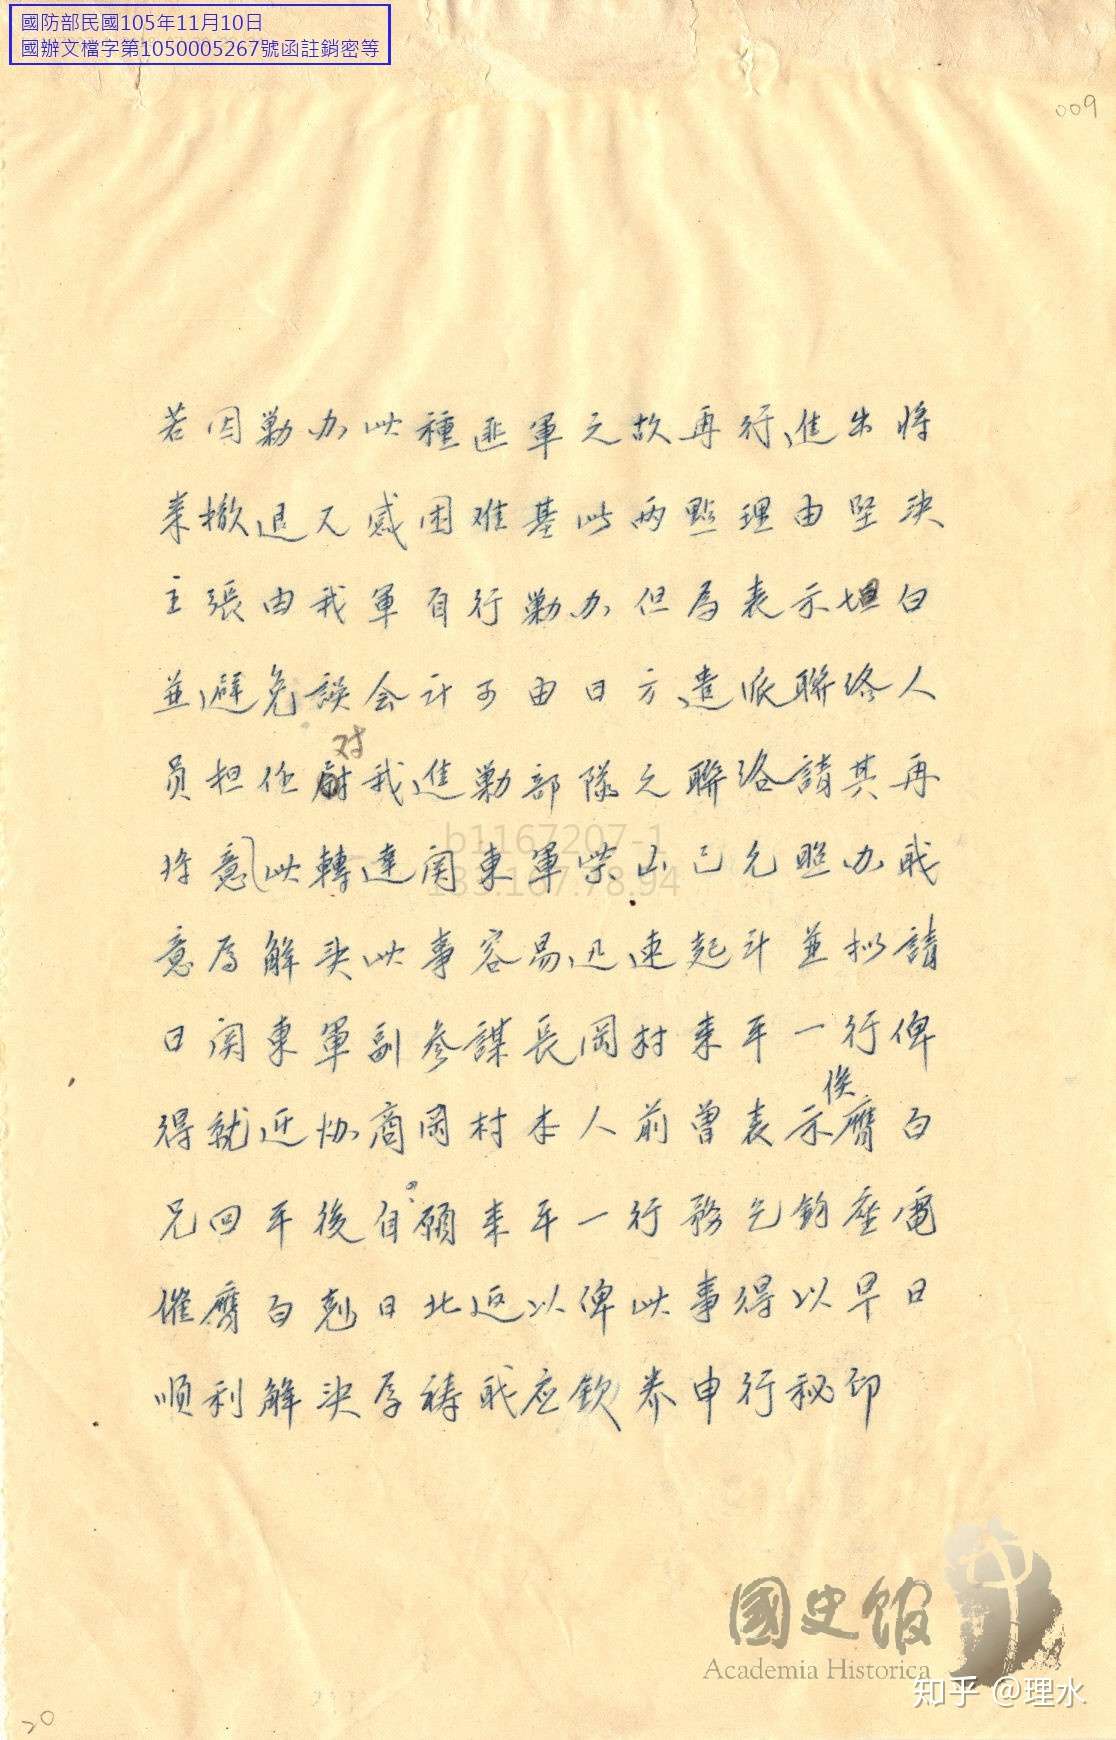 國防部民國105年11月10日
國辦文檔字第1050005267號函註銷密等
009
若因勦办此種匪軍之故再行進出將
来撤退又感困难基此两點理由坚决
主張由我軍自行勦办但為表示坦白
並避免誤会计可由日方遣派聯络人
员担任对我進勦部隊之聯洛請其再
将意此轉達関東軍柴山已允照办职
意為解决此事容易迅速起计並拟請
日関東軍副参謀長岡村来平一行俾
得就近协商岡村本人前曾表示俟膺白
兄回平後自願来平一行務乞鈞座電
催膺白尅日北返以俾此事得以早日
順利解决為祷职应欽叅申行秘印
b1167207-1
183.167.78.94
國史館
Academia Historica
知乎 @理水
20